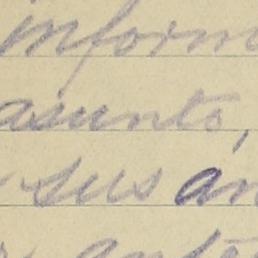 inform
asunto,
sus an